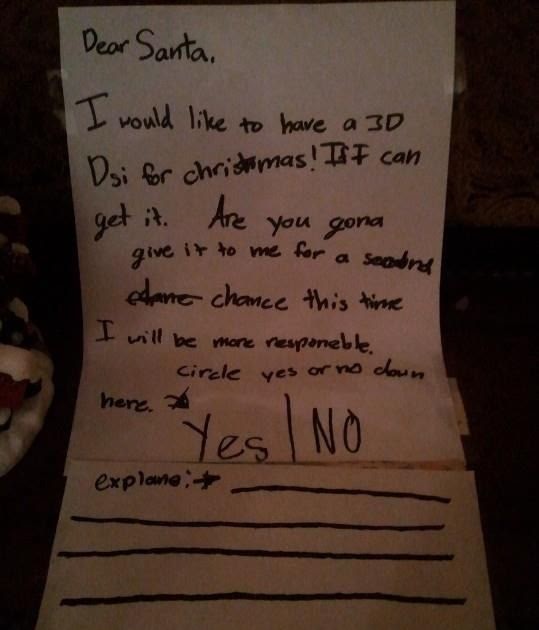 Dear Santa,
I would like to have a 3D
Dsi for christmas! If I can
get it. Are you gona
give it to me for a second
chance this time
I will be more responeble.
circle yes or no down
here.
Yes | NO
explane: